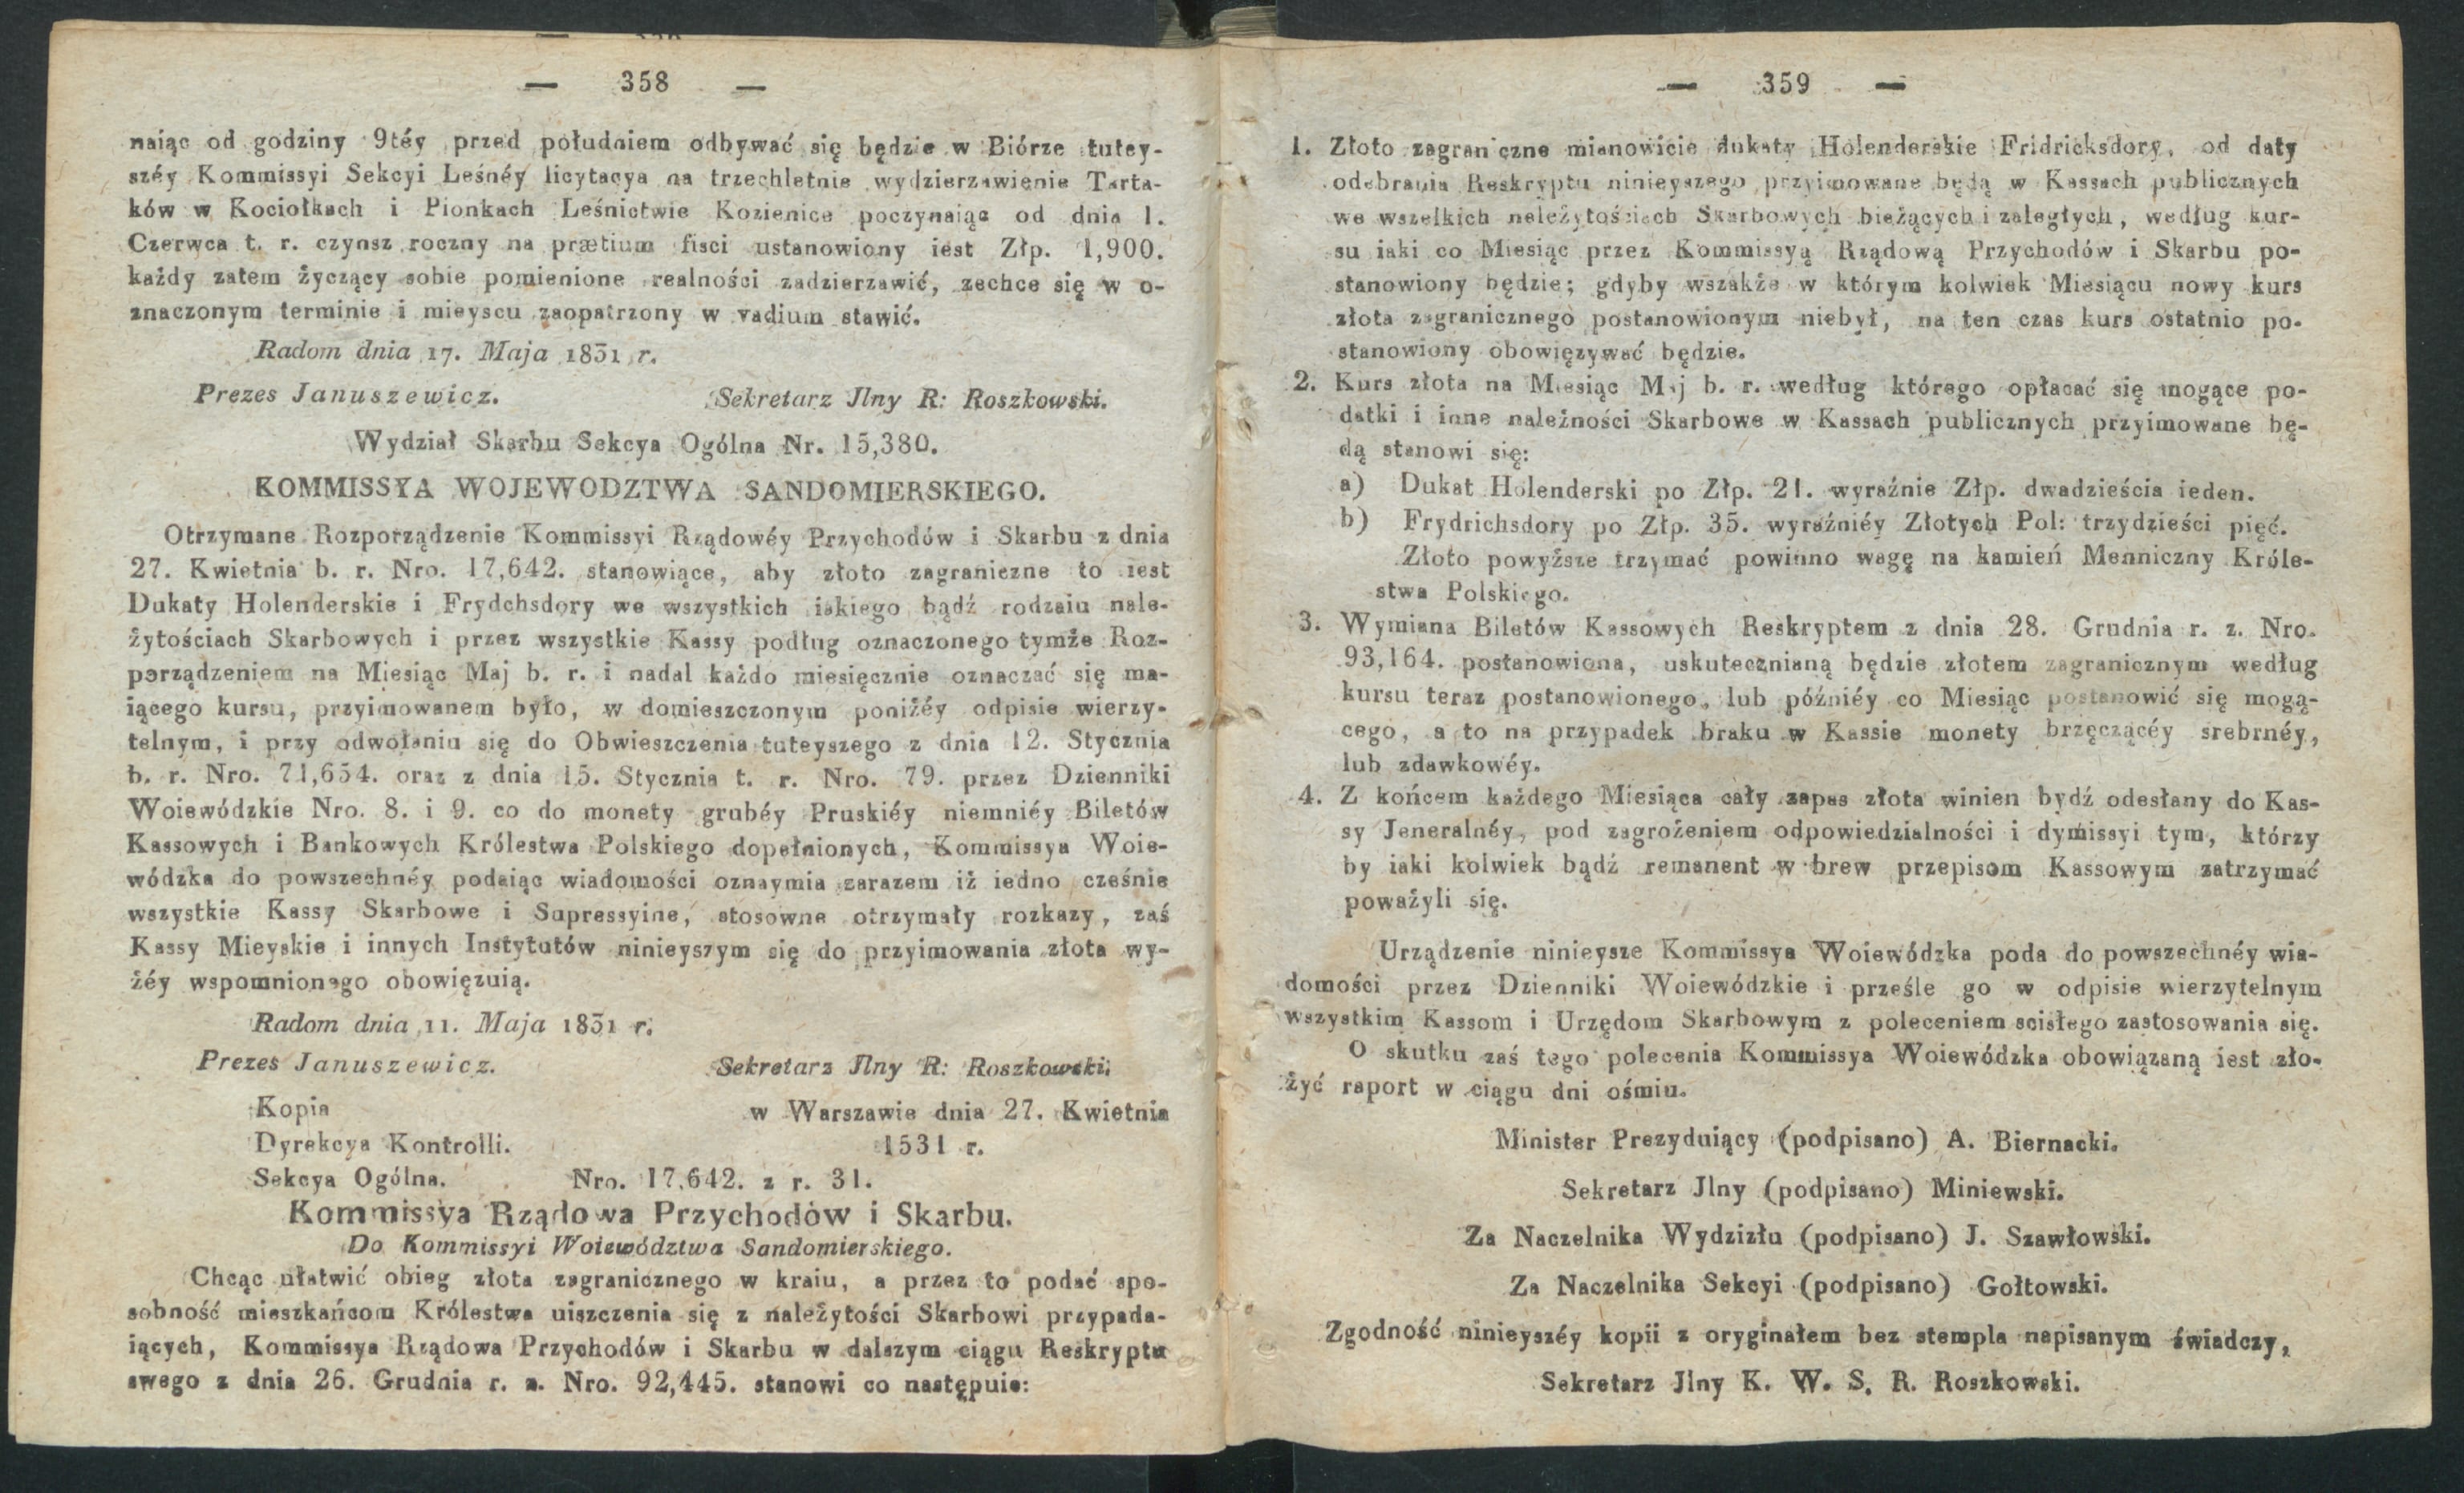 — 358 —
naiąc od godziny 9téy przed południem odbywać się będzie w Biórze tutey-
széy Kommissyi Sekcyi Leśnéy licytacya na trzechletnie wydzierzawienie Tarta-
ków w Kociołkach i Pionkach Leśnictwie Kozienice poczynaiąc od dnia 1.
Czerwca t. r. czynsz roczny na prætium fisci ustanowiony iest Złp. 1,900.
każdy zatem życzący sobie pomienione realności zadzierzawić, zechce się w o-
znaczonym terminie i mieyscu zaopatrzony w vadium stawić.
Radom dnia 17. Maja 1831 r.
Prezes Januszewicz. Sekretarz Jlny R: Roszkowski.
Wydział Skarbu Sekcya Ogólna Nr. 15,380.
KOMMISSYA WOJEWODZTWA SANDOMIERSKIEGO.
Otrzymane Rozporządzenie Kommissyi Rządowéy Przychodów i Skarbu z dnia
27. Kwietnia b. r. Nro. 17,642. stanowiące, aby złoto zagraniczne to iest
Dukaty Holenderskie i Frydchsdory we wszystkich iakiego bądź rodzaiu nale-
żytościach Skarbowych i przez wszystkie Kassy podług oznaczonego tymże Roz-
porządzeniem na Miesiąc Maj b. r. i nadal każdo miesięcznie oznaczać się ma-
iącego kursu, przyimowanem było, w domieszczonym poniżéy odpisie wierzy-
telnym, i przy odwołaniu się do Obwieszczenia tuteyszego z dnia 12. Stycznia
b. r. Nro. 71,654. oraz z dnia 15. Stycznia t. r. Nro. 79. przez Dzienniki
Woiewódzkie Nro. 8. i 9. co do monety grubéy Pruskiéy niemniéy Biletów
Kassowych i Bankowych Królestwa Polskiego dopełnionych, Kommissya Woie-
wódzka do powszechnéy podaiąc wiadomości oznaymia zarazem iż iedno cześnie
wszystkie Kassy Skarbowe i Supressyine, stosowne otrzymały rozkazy, zaś
Kassy Mieyskie i innych Instytutów ninieyszym się do przyimowania złota wy-
żéy wspomnionego obowięzuią.
Radom dnia 11. Maja 1831 r.
Prezes Januszewicz. Sekretarz Jlny R: Roszkowski.
Kopia w Warszawie dnia 27. Kwietnia
Dyrekcya Kontrolli. 1531 r.
Sekcya Ogólna. Nro. 17,642. z r. 31.
Kommissya Rządowa Przychodów i Skarbu.
Do Kommissyi Woiewództwa Sandomierskiego.
Chcąc ułatwić obieg złota zagranicznego w kraiu, a przez to podać spo-
sobność mieszkańcom Królestwa uiszczenia się z należytości Skarbowi przypada-
iących, Kommissya Rządowa Przychodów i Skarbu w dalszym ciągu Reskryptu
swego z dnia 26. Grudnia r. z. Nro. 92,445. stanowi co następuie:
— 359 —
1. Złoto zagraniczne mianowicie dukaty Holenderskie Fridricksdory, od daty
odebrania Reskryptu ninieyszego przyimowane będą w Kassach publicznych
we wszelkich należytościach Skarbowych bieżących i zaległych, według kur-
su iaki co Miesiąc przez Kommissyą Rządową Przychodów i Skarbu po-
stanowiony będzie; gdyby wszakże w którym kolwiek Miesiącu nowy kurs
złota zagranicznego postanowionym niebył, na ten czas kurs ostatnio po-
stanowiony obowięzywać będzie.
2. Kurs złota na Miesiąc Maj b. r. według którego opłacać się mogące po-
datki i inne należności Skarbowe w Kassach publicznych przyimowane bę-
dą stanowi się:
a) Dukat Holenderski po Złp. 21. wyraźnie Złp. dwadzieścia ieden.
b) Frydrichsdory po Złp. 35. wyraźniéy Złotych Pol: trzydzieści pięć.
Złoto powyższe trzymać powinno wagę na kamień Menniczny Króle-
stwa Polskiego.
3. Wymiana Biletów Kassowych Reskryptem z dnia 28. Grudnia r. z. Nro.
93,164. postanowiona, uskutecznianą będzie złotem zagranicznym według
kursu teraz postanowionego, lub późniéy co Miesiąc postanowić się mogą-
cego, a to na przypadek braku w Kassie monety brzęczącéy srebrnéy,
lub zdawkowéy.
4. Z końcem każdego Miesiąca cały zapas złota winien bydź odesłany do Kas-
sy Jeneralnéy, pod zagrożeniem odpowiedzialności i dymissyi tym, którzy
by iaki kolwiek bądź remanent w brew przepisom Kassowym zatrzymać
poważyli się.
Urządzenie ninieysze Kommissya Woiewódzka poda do powszechnéy wia-
domości przez Dzienniki Woiewódzkie i prześle go w odpisie wierzytelnym
wszystkim Kassom i Urzędom Skarbowym z poleceniem scisłego zastosowania się.
O skutku zaś tego polecenia Kommissya Woiewódzka obowiązaną iest zło-
żyć raport w ciągu dni ośmiu.
Minister Prezyduiący (podpisano) A. Biernacki.
Sekretarz Jlny (podpisano) Miniewski.
Za Naczelnika Wydzizłu (podpisano) J. Szawłowski.
Za Naczelnika Sekcyi (podpisano) Gołtowski.
Zgodność ninieyszéy kopii z oryginałem bez stempla napisanym świadczy,
Sekretarz Jlny K. W. S. R. Roszkowski.